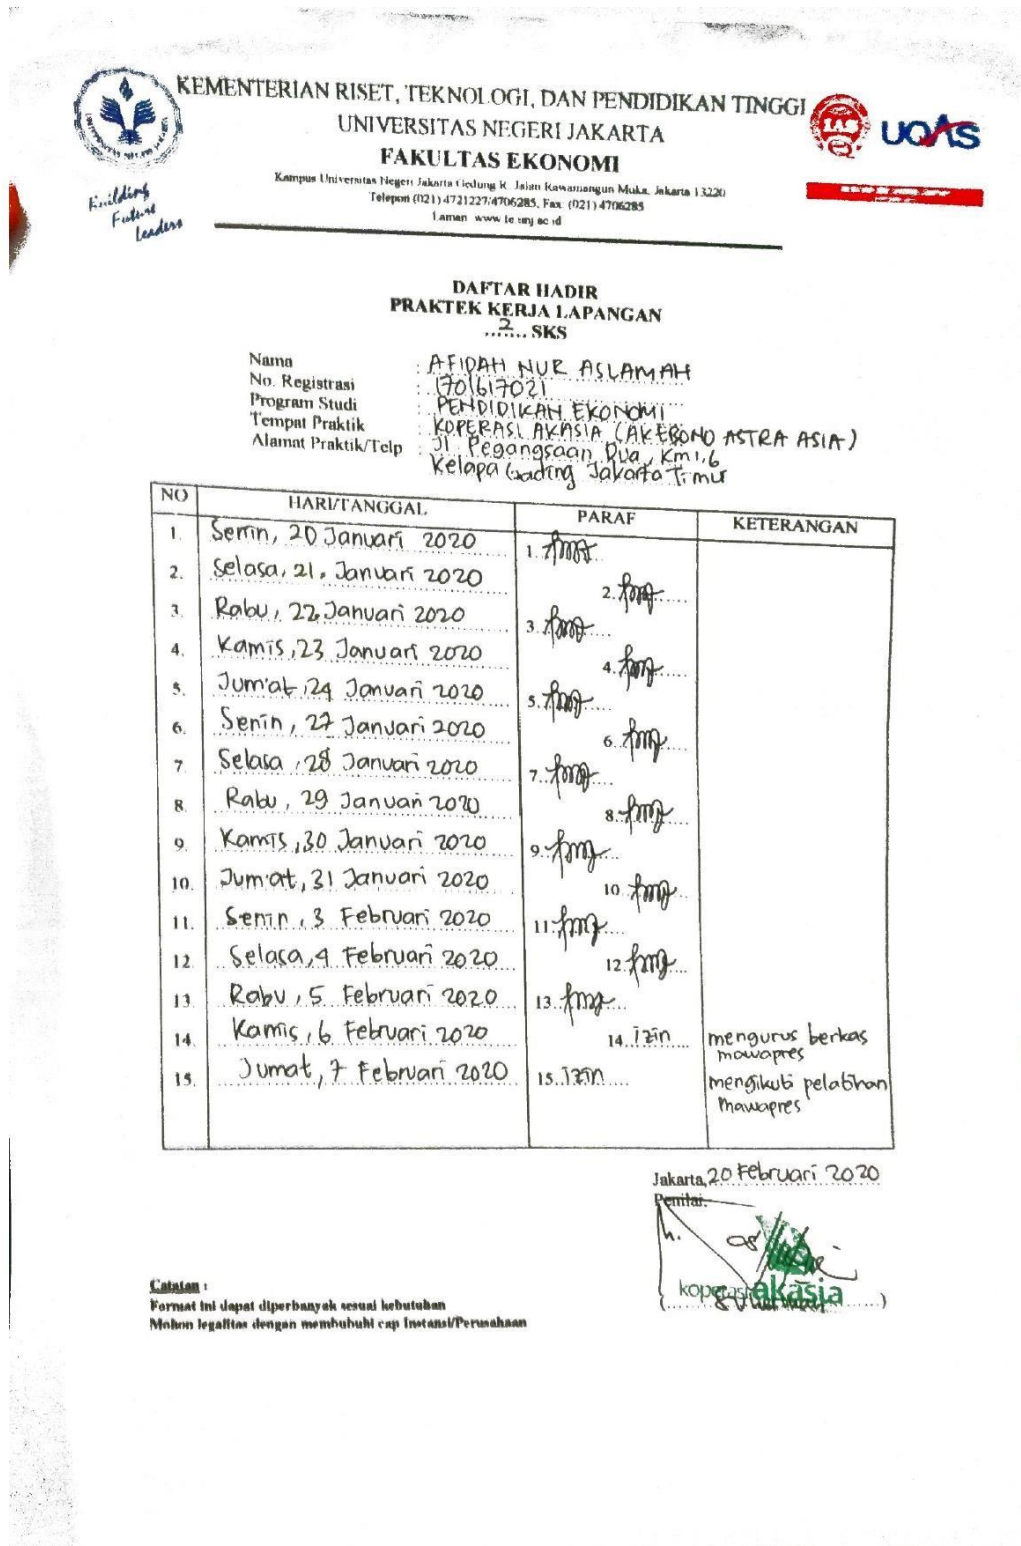 KEMENTERIAN RISET, TEKNOLOGI, DAN PENDIDIKAN TINGGI
UNIVERSITAS NEGERI JAKARTA
FAKULTAS EKONOMI
Kampus Universitas Negeri Jakarta Gedung R. Jalan Rawamangun Muka, Jakarta 13220
Telepon (021) 4721227/4706285, Fax: (021) 4706285
Laman: www.fe.unj.ac.id
UQAS
Building
Future
Leaders
DAFTAR HADIR
PRAKTEK KERJA LAPANGAN
...2.... SKS
Nama : AFIDAH NUR ASLAMAH
No. Registrasi : 1701617021
Program Studi : PENDIDIKAN EKONOMI
Tempat Praktik : KOPERASI AKASIA (AKEBONO ASTRA ASIA)
Alamat Praktik/Telp : Jl. Pegangsaan Dua, Km 1,6
Kelapa Gading Jakarta Timur
NO HARI/TANGGAL PARAF KETERANGAN
1. Senin, 20 Januari 2020 1.
2. Selasa, 21, Januari 2020 2.
3. Rabu, 22, Januari 2020 3.
4. Kamis, 23 Januari 2020 4.
5. Jum'at, 24 Januari 2020 5.
6. Senin, 27 Januari 2020 6.
7. Selasa, 28 Januari 2020 7.
8. Rabu, 29 Januari 2020 8.
9. Kamis, 30 Januari 2020 9.
10. Jum'at, 31 Januari 2020 10.
11. Senin, 3 Februari 2020 11.
12. Selasa, 4 Februari 2020 12.
13. Rabu, 5 Februari 2020 13.
14. Kamis, 6 Februari 2020 14. izin mengurus berkas
mawapres
15. Jumat, 7 Februari 2020 15. izin mengikuti pelatihan
mawapres
Jakarta, 20 Februari 2020
Penilai.
koperasi akasia
Catatan :
Format ini dapat diperbanyak sesuai kebutuhan
Mohon legalitas dengan membubuhi cap Instansi/Perusahaan